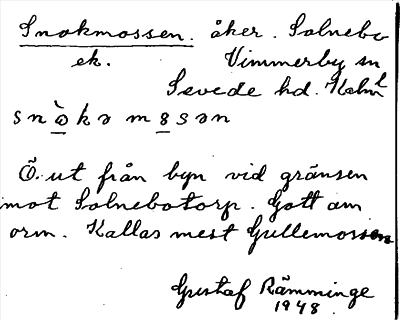 Snokmossen. åker. Solnebo
ek. Vimmerby sn
Sevede hd. Kalm l
snò̱kə mo̱sən
Ö. ut från byn vid gränsen
mot Solnebotorp. Gott om
orm. Kallas mest Gullemossen
Gustaf Rämminge
1948.